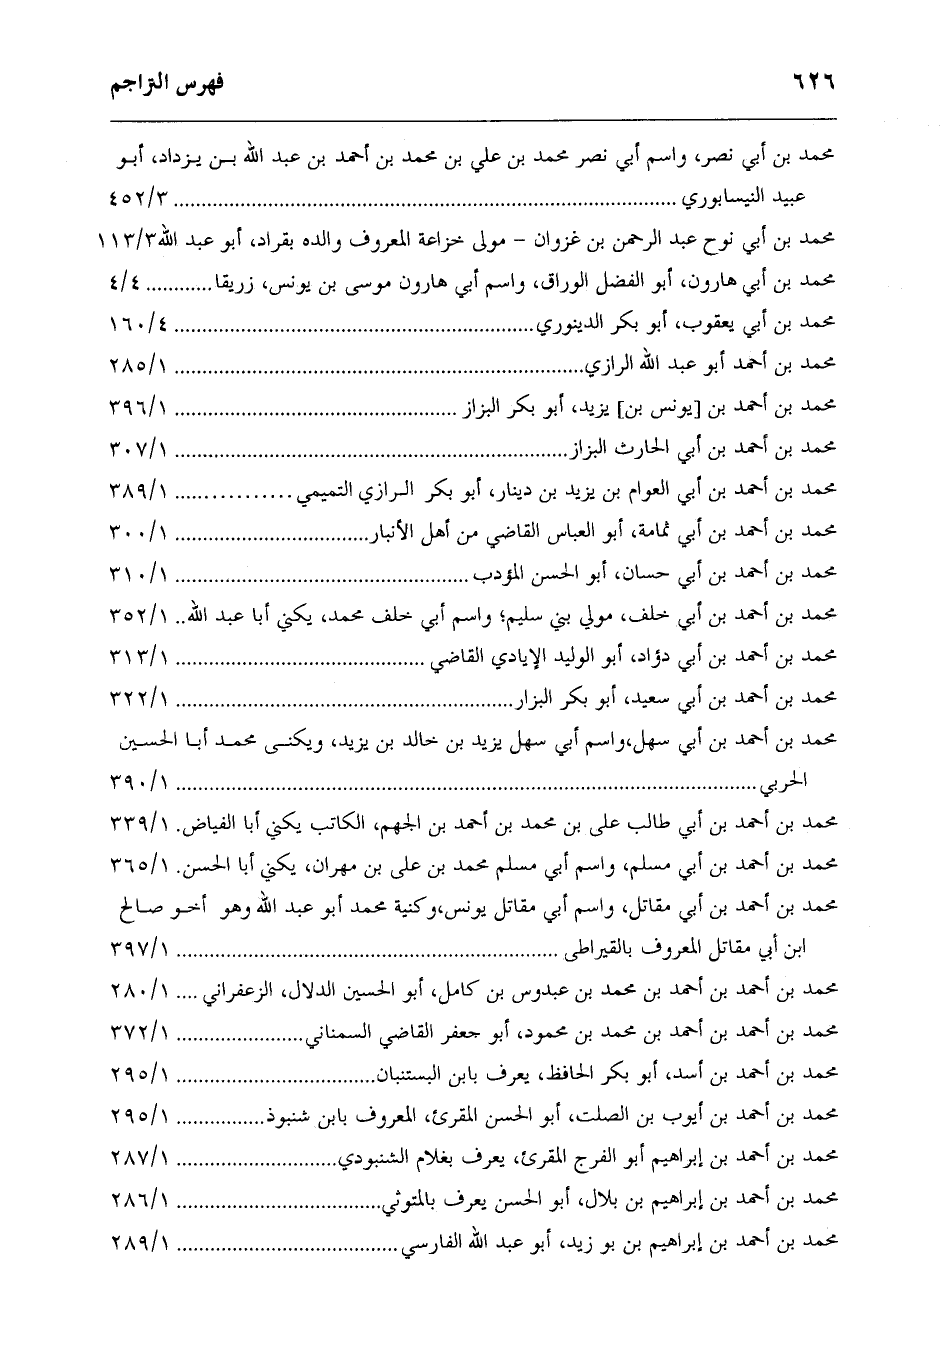 ٦٢٦ فهرس التراجم
محمد بن أبي نصر، واسم أبي نصر محمد بن علي بن محمد بن أحمد بن عبد الله بن يزداد، أبو
عبيد النيسابوري ........ ٤٥٢/٣
محمد بن أبي نوح عبد الرحمن بن غزوان – مولى خزاعة المعروف والده بقراد، أبو عبد الله١١٣/٣
محمد بن أبي هارون، أبو الفضل الوراق، واسم أبي هارون موسى بن يونس، زريقا............ ٤/٤
محمد بن أبي يعقوب، أبو بكر الدينوري........ ١٦٠/٤
محمد بن أحمد أبو عبد الله الرازي........ ٢٨٥/١
محمد بن أحمد بن [يونس بن] يزيد، أبو بكر البزاز ........ ٣٩٦/١
محمد بن أحمد بن أبي الحارث البزاز........ ٣٠٧/١
محمد بن أحمد بن أبي العوام بن يزيد بن دينار، أبو بكر الرازي التميمي........ ٣٨٩/١
محمد بن أحمد بن أبي ثمامة، أبو العباس القاضي من أهل الأنبار........ ٣٠٠/١
محمد بن أحمد بن أبي حسان، أبو الحسن المؤدب........ ٣١٠/١
محمد بن أحمد بن أبي خلف، مولي بني سليم؛ واسم أبي خلف محمد، يكني أبا عبد الله.. ٣٥٢/١
محمد بن أحمد بن أبي دؤاد، أبو الوليد الإيادي القاضي ........ ٣١٣/١
محمد بن أحمد بن أبي سعيد، أبو بكر البزار........ ٣٢٢/١
محمد بن أحمد بن أبي سهل،واسم أبي سهل يزيد بن خالد بن يزيد، ويكنى محمد أبا الحسين
الحربي........ ٣٩٠/١
محمد بن أحمد بن أبي طالب على بن محمد بن أحمد بن الجهم، الكاتب يكني أبا الفياض. ٣٣٩/١
محمد بن أحمد بن أبي مسلم، واسم أبي مسلم محمد بن على بن مهران، يكني أبا الحسن. ٣٦٥/١
محمد بن أحمد بن أبي مقاتل، واسم أبي مقاتل يونس،وكنية محمد أبو عبد الله وهو أخو صالح
ابن أبي مقاتل المعروف بالقيراطى ........ ٣٩٧/١
محمد بن أحمد بن أحمد بن محمد بن عبدوس بن كامل، أبو الحسين الدلال، الزعفراني .... ٢٨٠/١
محمد بن أحمد بن أحمد بن محمد بن محمود، أبو جعفر القاضي السمناني........ ٣٧٢/١
محمد بن أحمد بن أسد، أبو بكر الحافظ، يعرف بابن البستنبان........ ٢٩٥/١
محمد بن أحمد بن أيوب بن الصلت، أبو الحسن المقرئ، المعروف بابن شنبوذ........ ٢٩٥/١
محمد بن أحمد بن إبراهيم أبو الفرج المقرئ، يعرف بغلام الشنبودي........ ٢٨٧/١
محمد بن أحمد بن إبراهيم بن بلال، أبو الحسن يعرف بالمتوثي........ ٢٨٦/١
محمد بن أحمد بن إبراهيم بن بو زيد، أبو عبد الله الفارسي........ ٢٨٩/١